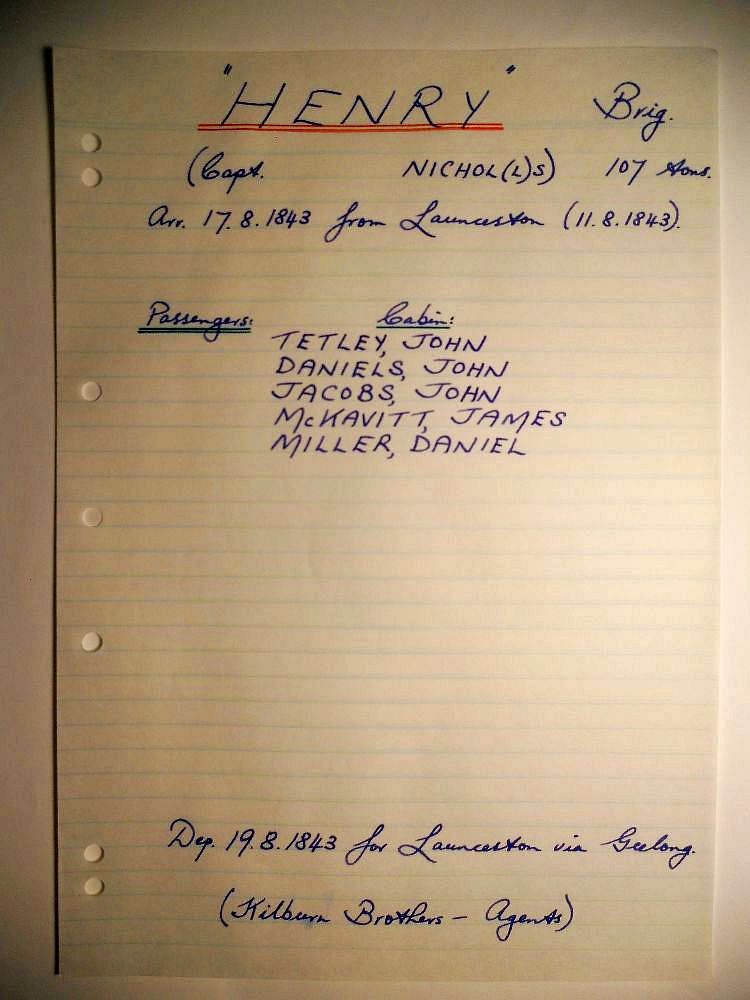 "HENRY" Brig.
(Capt. NICHOL(L)S) 107 tons.
Arr. 17.8.1843 from Launceston (11.8.1843).
Passengers: Cabin:
TETLEY, JOHN
DANIELS, JOHN
JACOBS, JOHN
McKAVITT, JAMES
MILLER, DANIEL
Dep. 19.8.1843 for Launceston via Geelong.
(Kilburn Brothers - Agents)